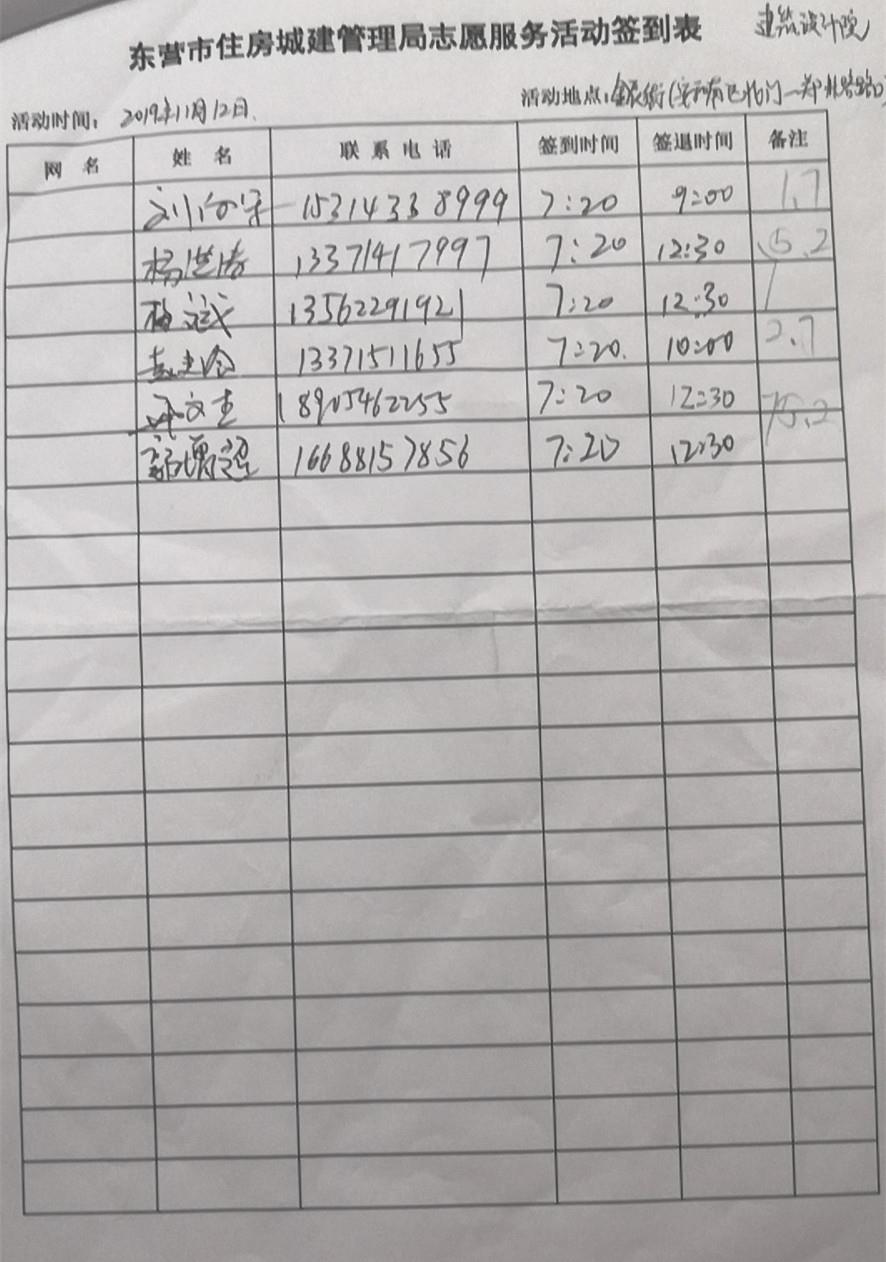 东营市住房城建管理局志愿服务活动签到表 建筑设计院
活动时间： 2019年11月12日.
活动地点：银街
网 名 姓 名 联 系 电 话 签到时间 签退时间 备注
15314338999 7:20 9:00 1.7
13371417997 7:20 12:30 5.2
13562291921 7:20 12:30
13371511655 7:20. 10:00 2.7
18905462255 7:20 12:30
16688157856 7:20 12:30 5.2